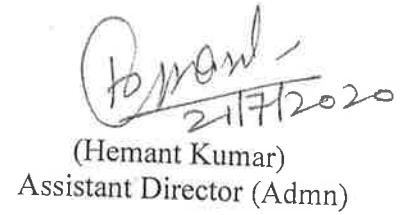 21/7/2020
(Hemant Kumar)
Assistant Director (Admn)